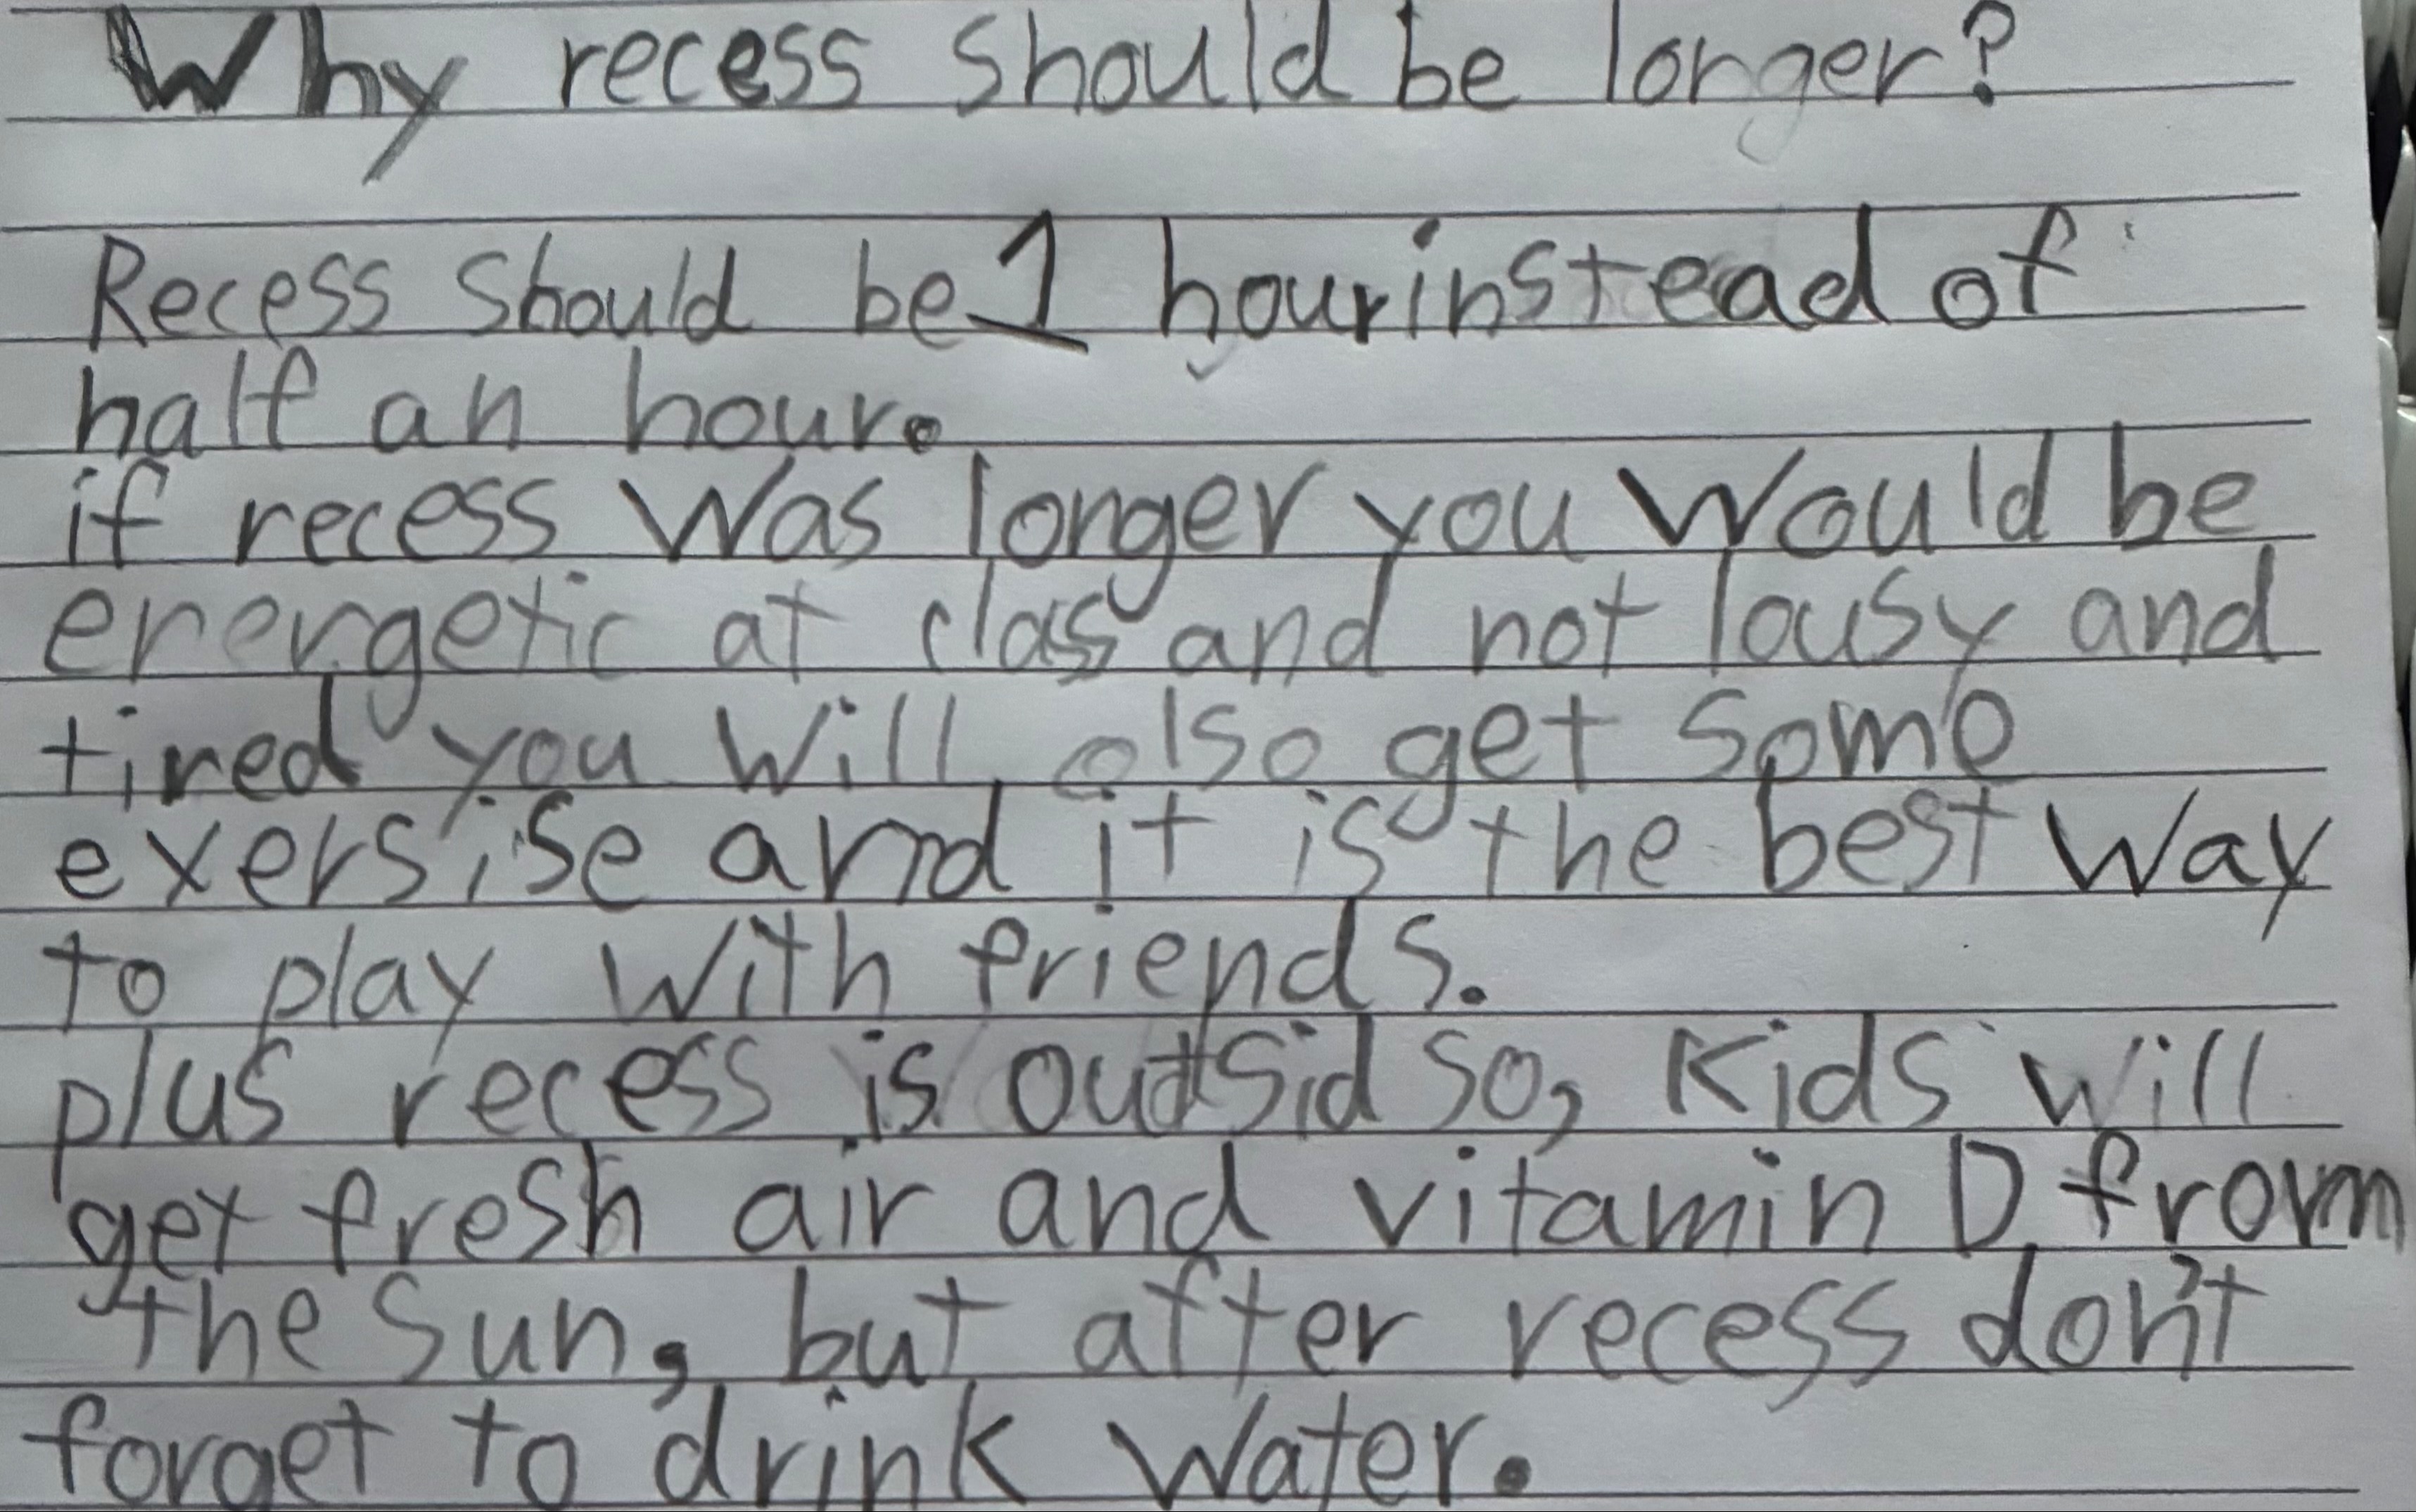 Why recess should be longer?
Recess should be 1 hour instead of
half an hour.
if recess was longer you would be
energetic at class and not lousy and
tired you will also get some
exersise and it is the best way
to play with friends.
plus recess is outsid so, kids will
get fresh air and vitamin D from
the sun, but after recess don't
forget to drink water.